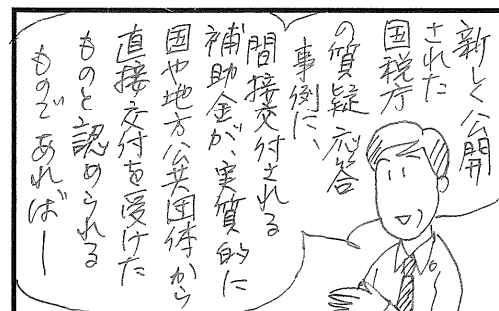 新しく公開
された
国税庁
の質疑応答
事例に、
間接交付される
補助金が、実質的に
国や地方公共団体から
直接交付を受けた
ものと認められる
ものであればー